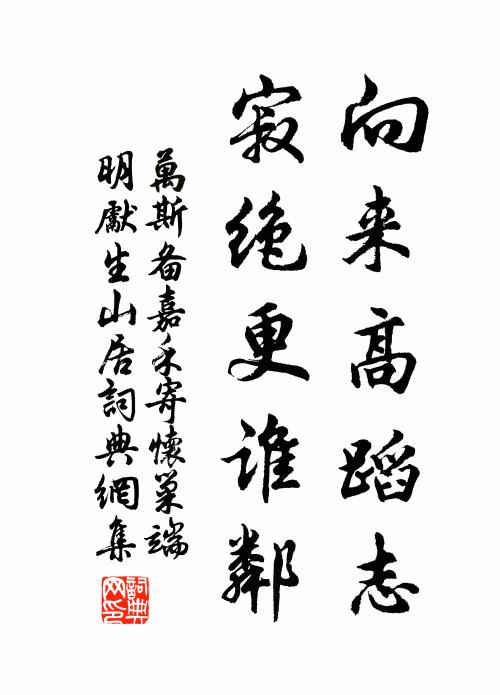 向来高蹈志
寂绝更谁鄰
萬斯备嘉禾寄懷巢端
明獻生山居詞典網集
詞典網印